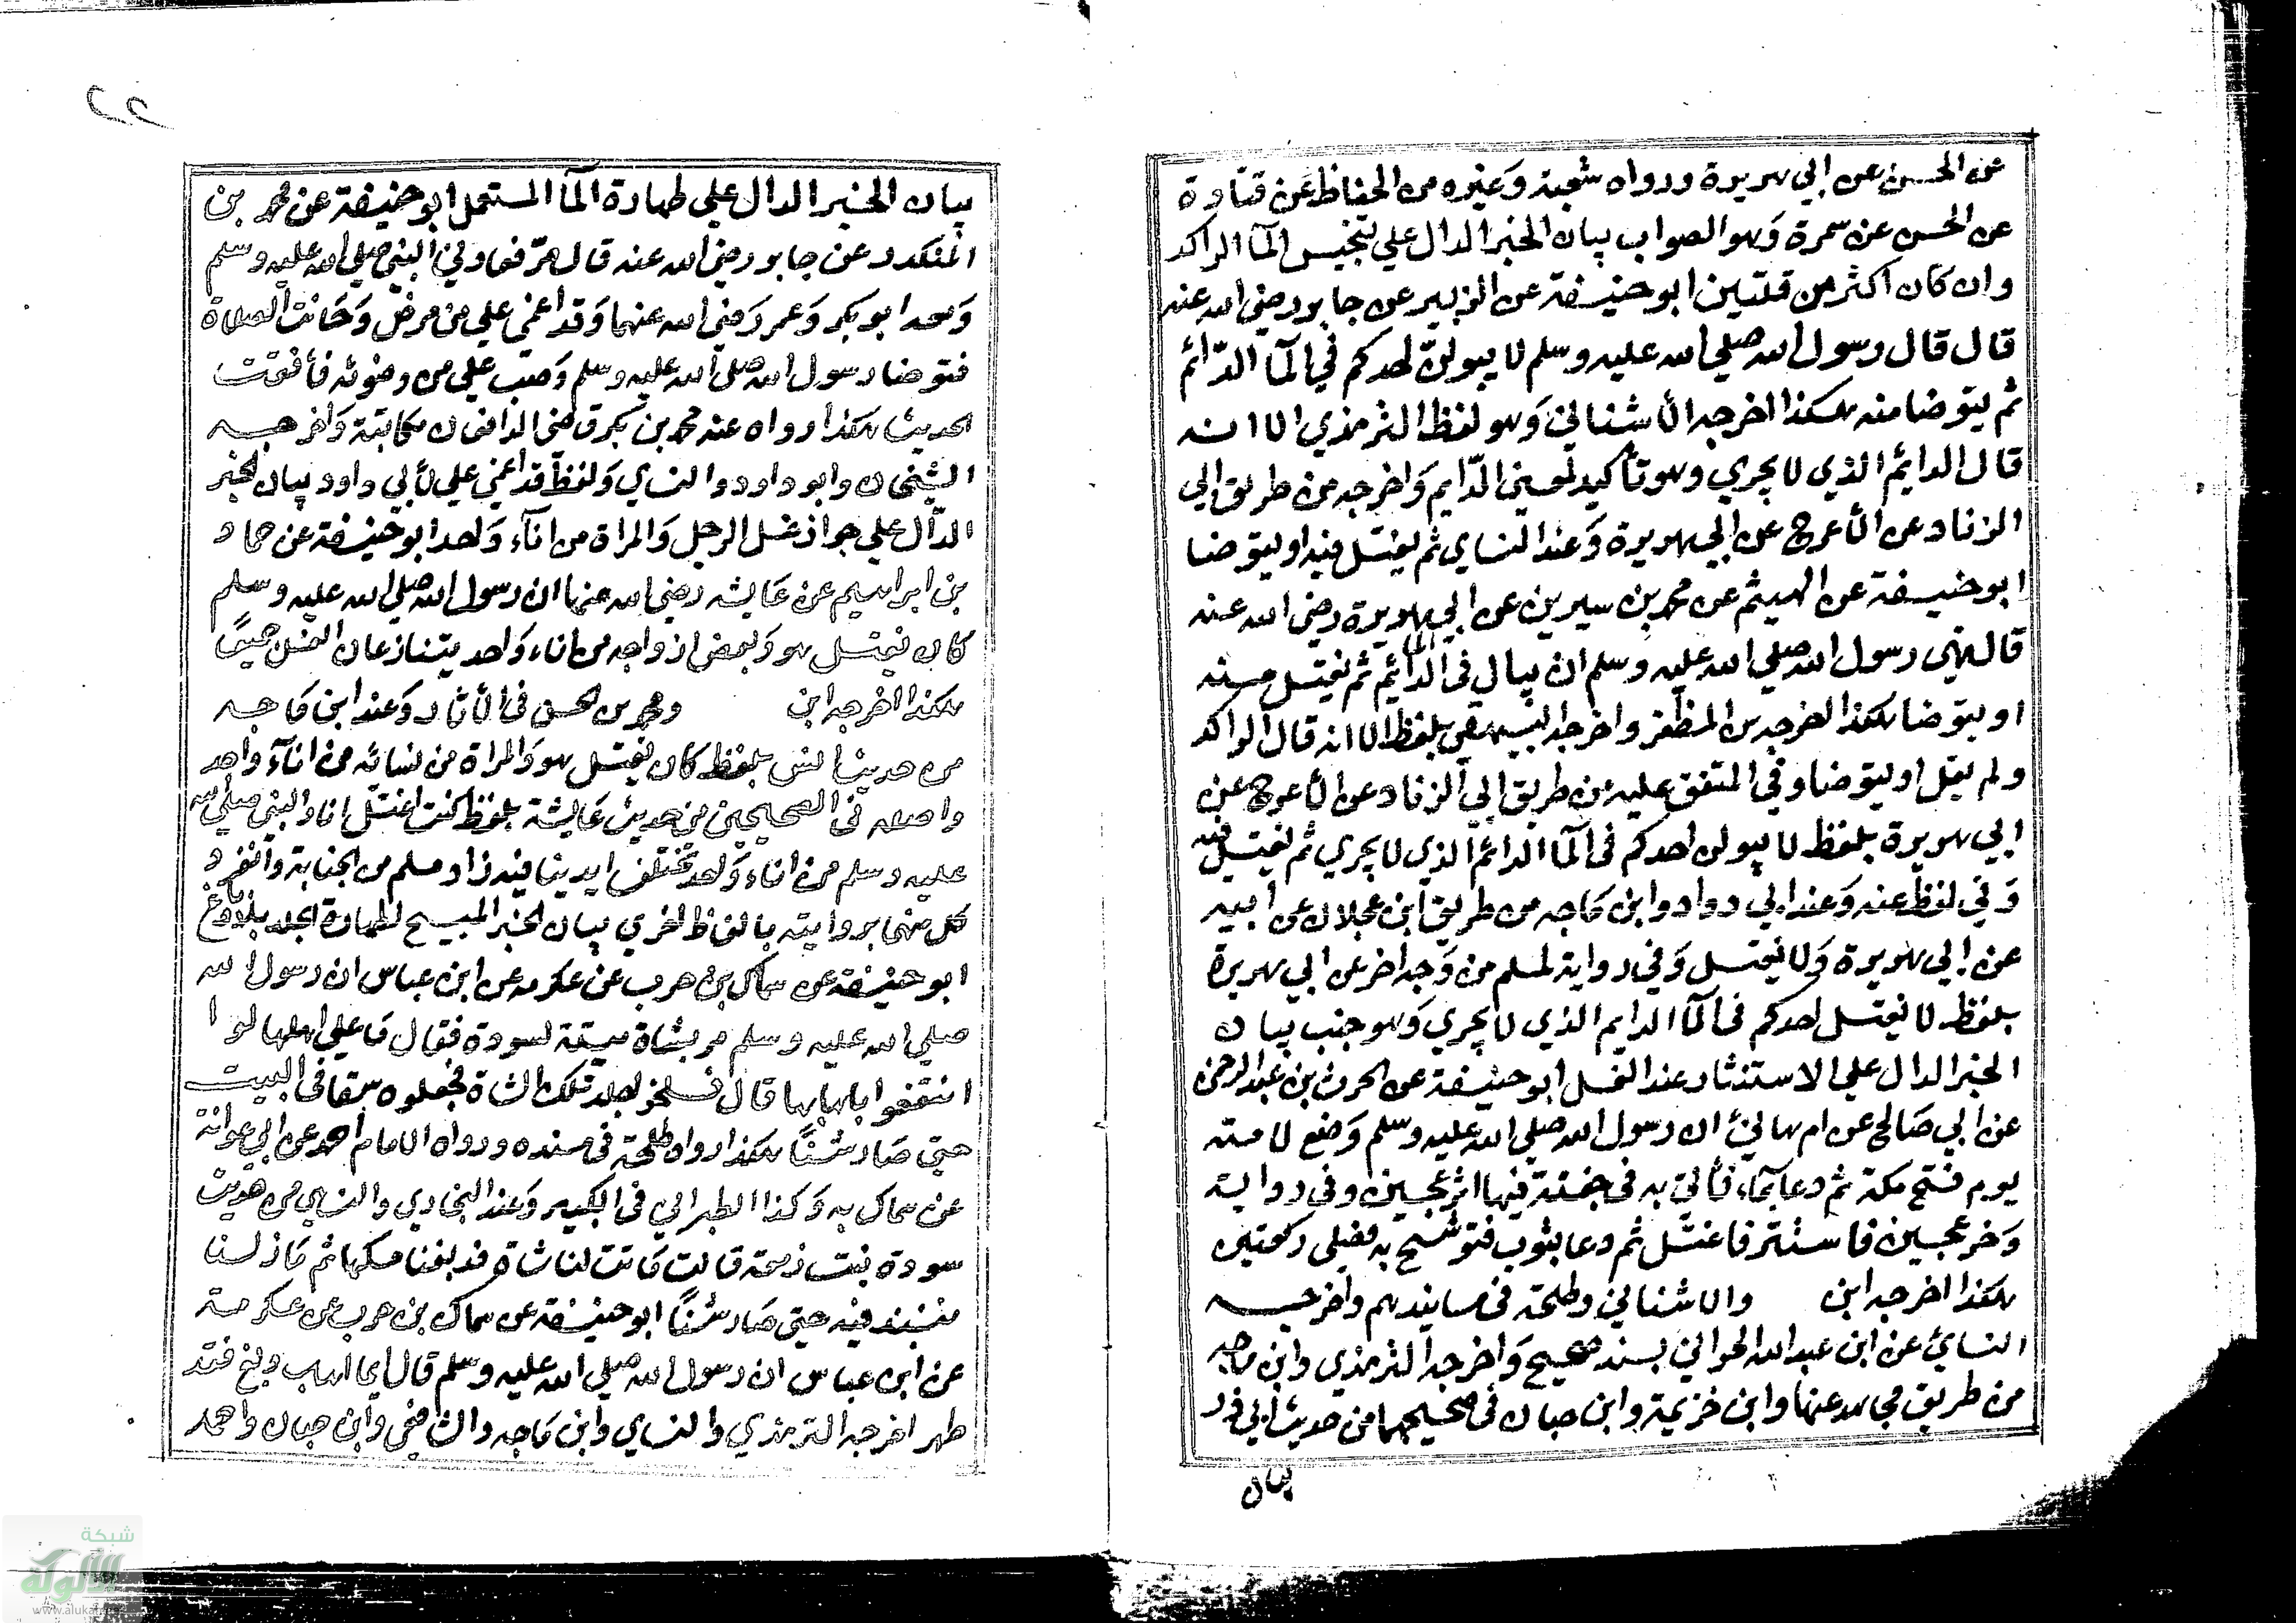 عن الحسن عن ابي هريرة ورواه شعبة وغيره من الحفاظ عن قتادة
عن الحسن عن سمرة وهو الصواب بيان الخبر الدال علي تنجيس المآ الراكد
وان كان اكثر من قلتين ابو حنيفة عن الزبير عن جابر رضي الله عنه
قال قال رسول الله صلي الله عليه وسلم لا يبولن احدكم في المآ الدّائم
ثم يتوضا منه هكذا اخرجه الأشناني وهو لفظ الترمذي الا انه
قال الدايم الذي لا يجري وهو تأكيد لمعني الدّايم واخرجه من طريق ابي
الزناد عن الأعرج عن ابي هريرة وعند النساي ثم يغتسل فيه او يتوضا
ابو حنيفة عن الهيثم عن محمد بن سيرين عن ابي هريرة رضي الله عنه
قال نهى رسول الله صلي الله عليه وسلم ان يبال في الما الدائم ثم يغتسل منه
او يتوضا هكذا اخرجه بن المظفر واخرجه البيهقي بلفظ الا انه قال الراكد
ولم يقل او يتوضا وفي المتفق عليه من طريق ابي الزناد عن الأعرج عن
ابي هريرة بلفظ لا يبولن احدكم في المآ الدائم الذي لا يجري ثم يغتسل فيه
وفي لفظ عنه وعند ابي دواد وابن ماجه من طريق ابن عجلان عن أبيه
عن ابي هريرة ولا يغتسل وفي رواية لمسلم من وجه اخر عن ابي هريرة
بلفظ لا يغتسل احدكم في المآ الدايم الذي لا يجري وهو جنب بيان
الخبر الدال علي الاستتار عند الغسل ابو حنيفة عن الحرث بن عبد الرحمن
عن ابي صالح عن ام هانئ ان رسول الله صلي الله عليه وسلم وضع لامته
يوم فتح مكة ثم دعا بمآء فأتي به في جفنة فيها اثر عجين وفي رواية
وخر عجين فاستتر فاغتسل ثم دعا بثوب فتوشح به فصلى ركعتين
هكذا اخرجه ابن والاشناني وطلحة في مسانيدهم واخرجه
النسائ عن ابن عبد الله الحراني بسند صحيح واخرجه الترمذي وابن ماجه
من طريق مجاهد عنها وابن خزيمة وابن حبان في صحيحهما من حديث ابي ذر
بيان
٢٢
بيان الخبر الدال علي طهارة المآ المستعمل ابو حنيفة عن محمد بن
المنكدر عن جابر رضي الله عنه قال مرّ فعادني النبي صلي الله عليه وسلم
ومعه ابو بكر وعمر رضي الله عنهما وقد اغمي علي من مرض وحانت الصلاة
فتوضا رسول الله صلي الله عليه وسلم وصب علي من وضوئه فأفقت
الحديث هكذا رواه عنه محمد بن بكر قاضي الدامغان مكاتبة واخرجه
الشيخان وابو داود والنساي ولفظ قد اغمي علي لأبي داود بيان الخبر
الدّال علي جواز غسل الرجل والمراة من انآء واحد ابو حنيفة عن حماد
بن ابراهيم عن عايشه رضي الله عنها ان رسول الله صلي الله عليه وسلم
كان يغتسل هو وبعض ازواجه من اناء واحد يتنازعان الغسل جميعًا
هكذا اخرجه ابن ومحمد بن الحسن في الأثار وعند ابن ماجه
من حديث انس بلفظ كان يغتسل هو والمراة من نسائه من انآء واحد
واصله في الصحيحين من حديث عايشة بلفظ كنت اغتسل انا والنبي صلي الله
عليه وسلم من اناء واحد تختلف ايدينا فيه زاد مسلم من الجنابة وانفرد
كل منهما بروايته بالفاظ اخري بيان الخبر المبيح لطهارة الجلد بالدباغ
ابو حنيفة عن سماك بن حرب عن عكرمه عن ابن عباس ان رسول الله
صلي الله عليه وسلم مر بشاة ميتة لسودة فقال ما علي اهلها لو ا
انتفعوا باهابها قال فسلخوا جلد تلك الشاة فجعلوه سقا في البيت
حتي صار شنًا هكذا رواه طلحة في مسنده ورواه الامام احمد عن ابي عوانة
عن سماك به وكذا الطبراني في الكبير وعند البخاري والنساي من حديث
سودة بنت زمعة قالت ماتت لنا شاة فدبغنا مسكها ثم مازلنا
ننبذ فيه حتي صار شنًا ابو حنيفة عن سماك بن حرب عن عكرمة
عن ابن عباس ان رسول الله صلي الله عليه وسلم قال ايما اهاب دبغ فقد
طهر اخرجه الترمذي والنساي وابن ماجه والشافعي وابن حبان واحمد
شبكة
الألوكة